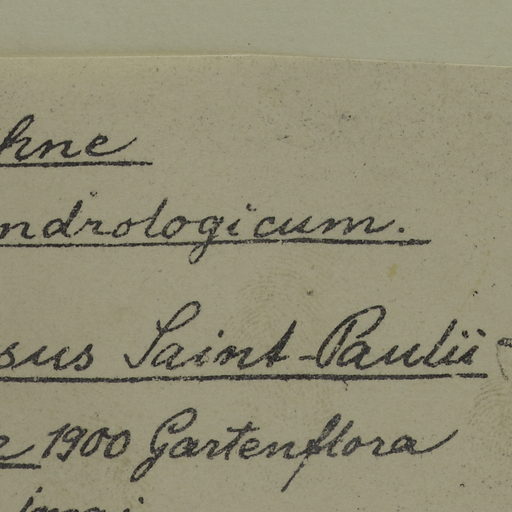 hne
ndrologicum.
sus Saint-Paulii
1900 Gartenflora